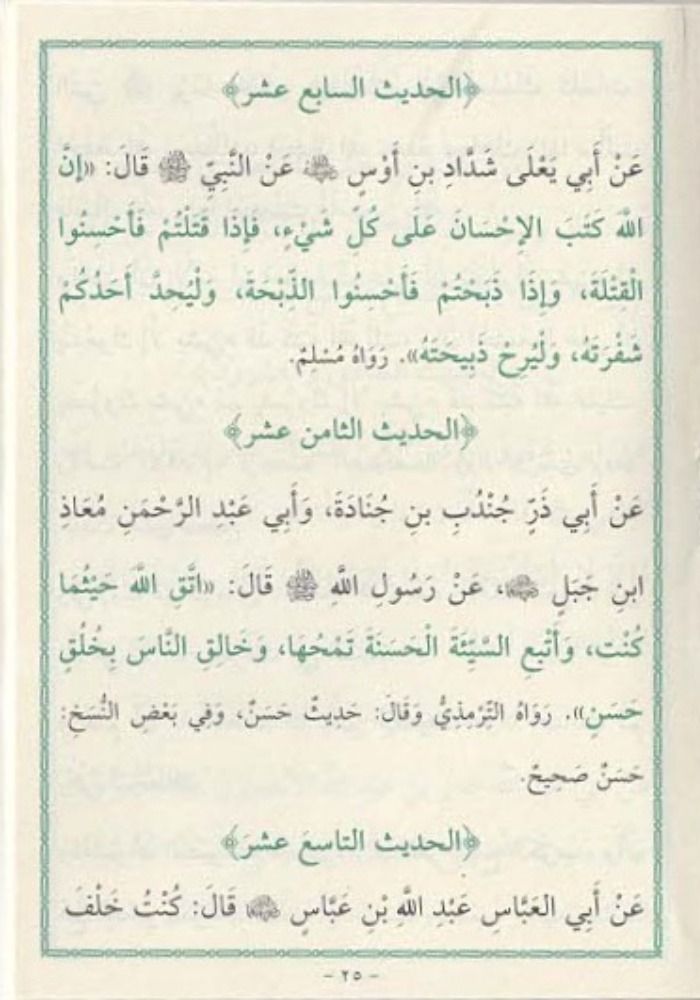 ﴿الحديث السابع عشر﴾
عَنْ أَبِي يَعْلَى شَدَّادِ بنِ أَوْسٍ رضي الله عنه عَنْ النَّبِيِّ ﷺ قَالَ: «إِنَّ
اللَّهَ كَتَبَ الإِحْسَانَ عَلَى كُلِّ شَيْءٍ، فَإِذَا قَتَلْتُمْ فَأَحْسِنُوا
الْقِتْلَةَ، وَإِذَا ذَبَحْتُمْ فَأَحْسِنُوا الذِّبْحَةَ، وَلْيُحِدَّ أَحَدُكُمْ
شَفْرَتَهُ، وَلْيُرِحْ ذَبِيحَتَهُ». رَوَاهُ مُسْلِمٌ.
﴿الحديث الثامن عشر﴾
عَنْ أَبِي ذَرٍّ جُنْدُبِ بنِ جُنَادَةَ، وَأَبِي عَبْدِ الرَّحْمَنِ مُعَاذِ
ابنِ جَبَلٍ رضي الله عنهما، عَنْ رَسُولِ اللَّهِ ﷺ قَالَ: «اتَّقِ اللَّهَ حَيْثُمَا
كُنْت، وَأَتْبِعِ السَّيِّئَةَ الْحَسَنَةَ تَمْحُهَا، وَخَالِقِ النَّاسَ بِخُلُقٍ
حَسَنٍ». رَوَاهُ التِّرْمِذِيُّ وَقَالَ: حَدِيثٌ حَسَنٌ، وَفِي بَعْضِ النُّسَخِ:
حَسَنٌ صَحِيحٌ.
﴿الحديث التاسع عشر﴾
عَنْ أَبِي العَبَّاسِ عَبْدِ اللَّهِ بْنِ عَبَّاسٍ رضي الله عنهما قَالَ: كُنْتُ خَلْفَ
- ٢٥ -